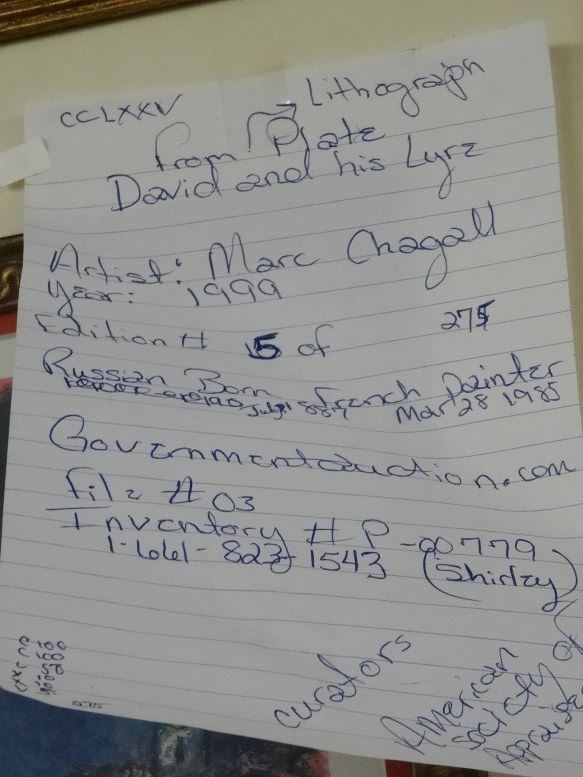 CCLXXV
Lithograph
from Plate
David and his Lyre
Artist: Marc Chagall
Year: 1999
Edition # 15 of 275
Russian Born French painter
Mar 28 1985
Governmentauction.com
file # 03
Inventory # P-00779
1-661-823-1543 (Shirley)
curators
American
society of
275